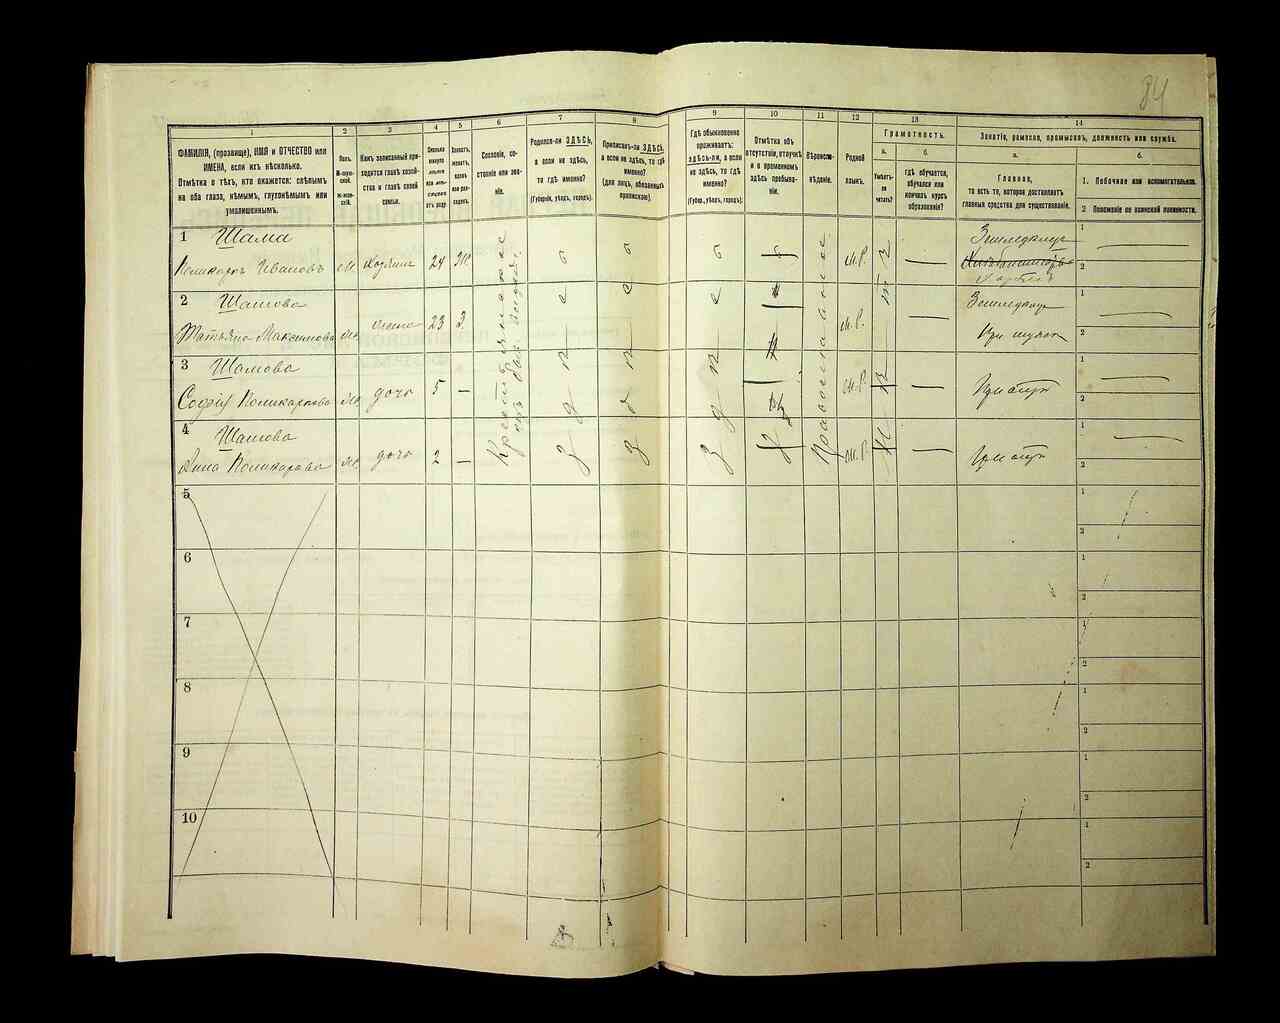 84
1
2
3
4
5
6
7
8
9
10
11
12
13
14
ФАМИЛІЯ, (прозвище), ИМЯ и ОТЧЕСТВО или
ИМЕНА, если ихъ нѣсколько.
Отмѣтка о тѣхъ, кто окажется: слѣпымъ
на оба глаза, нѣмымъ, глухонѣмымъ или
умалишеннымъ.
Полъ.
М-мужской.
Ж-женскій.
Какъ записанный приходится главѣ хозяйства и главѣ своей семьи.
Сколько минуло лѣтъ или мѣсяцевъ отъ роду.
Холостъ, женатъ, вдовъ или разведенъ.
Сословіе, состояніе или званіе.
Родился-ли ЗДѢСЬ,
а если не здѣсь,
то гдѣ именно?
(Губернія, уѣздъ, городъ).
Приписанъ-ли ЗДѢСЬ,
а если не здѣсь, то гдѣ
именно?
(для лицъ, обязанныхъ
припискою).
Гдѣ обыкновенно
проживаетъ:
ЗДѢСЬ-ли, а если
не здѣсь, то гдѣ
именно?
(Губер., уѣздъ, городъ).
Отмѣтка объ
отсутствіи, отлучкѣ
и о временномъ
здѣсь пребываніи.
Вѣроисповѣданіе.
Родной
языкъ.
Грамотность.
а.
Умѣетъ-ли
читать?
б.
гдѣ обучается,
обучался или
кончилъ курсъ
образованія?
Занятіе, ремесло, промыселъ, должность или служба.
а.
Главное,
то есть то, которое доставляетъ
главныя средства для существованія.
б.
1. Побочное или вспомогательное.
2 Положеніе по воинской повинности.
1 Шама
Поликарпъ Ивановъ М. хозяинъ 24 Ж. М.Р. Земледѣлецъ
2 Шамова
Татьяна Максимова жена 23 З. М.Р. Земледѣлец
При мужѣ
3 Шамова
Софія Поликарпова дочь 5 — М.Р. — При отцѣ
4 Шамова
Анна Поликарпова дочь 2 — М.Р. — При отцѣ
Крестьянское
Православное
Здѣсь
Здѣсь
Здѣсь
Нѣтъ
5
6
7
8
9
10